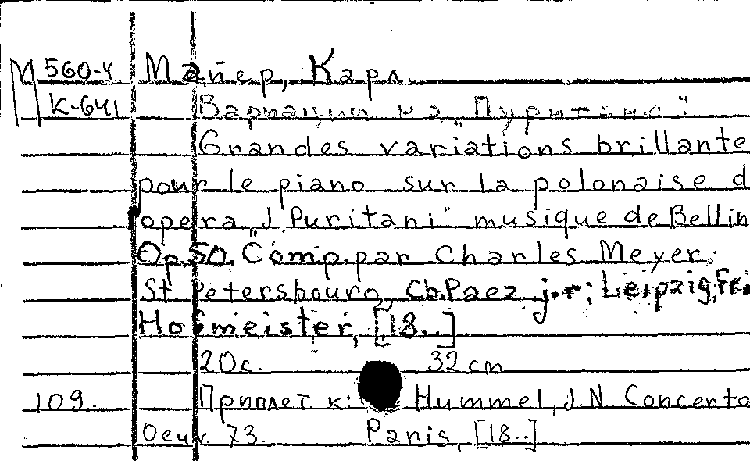 М 560-4 Майер, Карл.
К-641 Вариации на „Пуритане“
Grandes variations brillante
pour le piano sur la polonaise d
opera „J Puritani“ musique de Bellin
Op.50. Comp.par Charles Meyer.
St Petersbourg, Cb.Paez j-r; Leipzig, Fr.
Hofmeister, [18..]
20с. 32 cm
109. Приплет к: Hummel, J.N. Concerto
Oeuv 73. Paris, [18..]